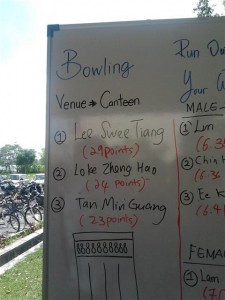 Bowling
Venue → Canteen
① Lee Swee Tiang
(29points)
② Loke Zheng Hao
(24 points)
③ Tan Min
(23points)
888888888
Run
Your
MALE
① Lim
(6.3
② Chin
(6.36
③ Ee K
(6.4
FEMA
① Lam